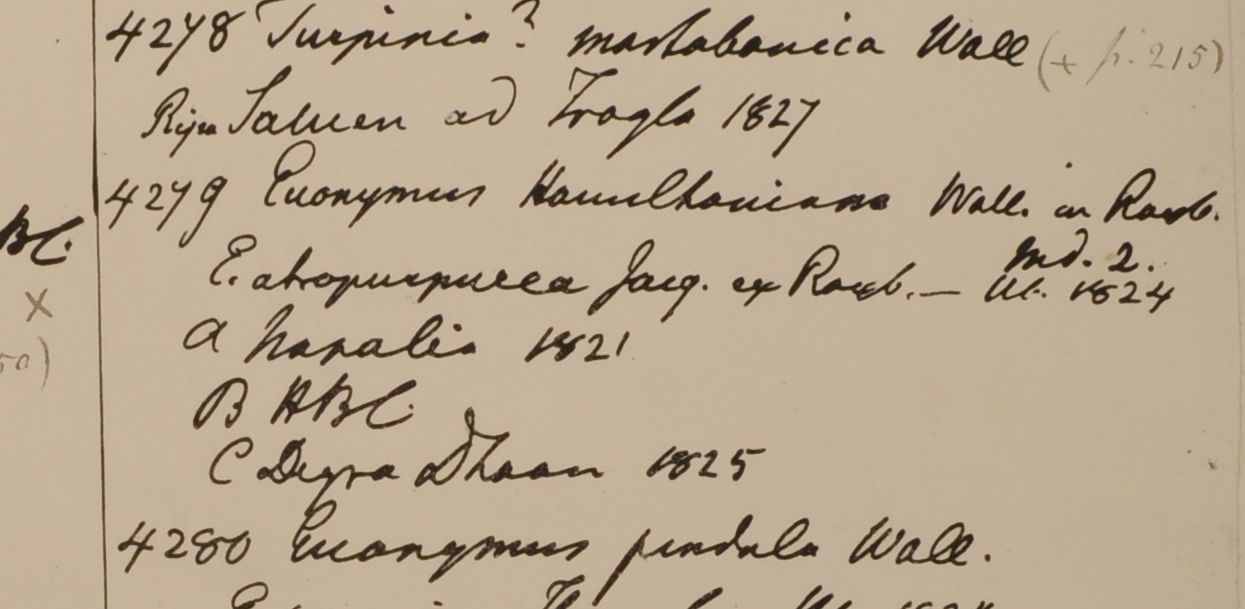 4278 Turpinia? martabanica Wall (+ p. 215)
Ripa Saluen ad Trogla 1827
4279 Euonymus Hamiltoniana Wall. in Roxb.
BC.
Ind. 2.
E. atropurpurea Jacq. ex Roxb. — 1824
X
a Napalia 1821
50)
B HBC.
C Deyra Dhoon 1825
4280 Euonymus pendula Wall.